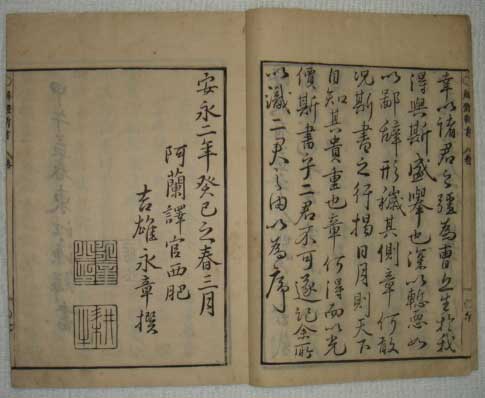 幸以諸君之彊為曹丘生於我
得與斯盛舉也深以慙惡
以鄙辭形穢其側章何敢
況斯書之行揭日月則天下
自知其貴重也章何得而以光
價斯書乎二君不可遂記余所
以識二君之由以為序
安永二年癸巳之春三月
阿蘭譯官西肥
吉雄永章撰